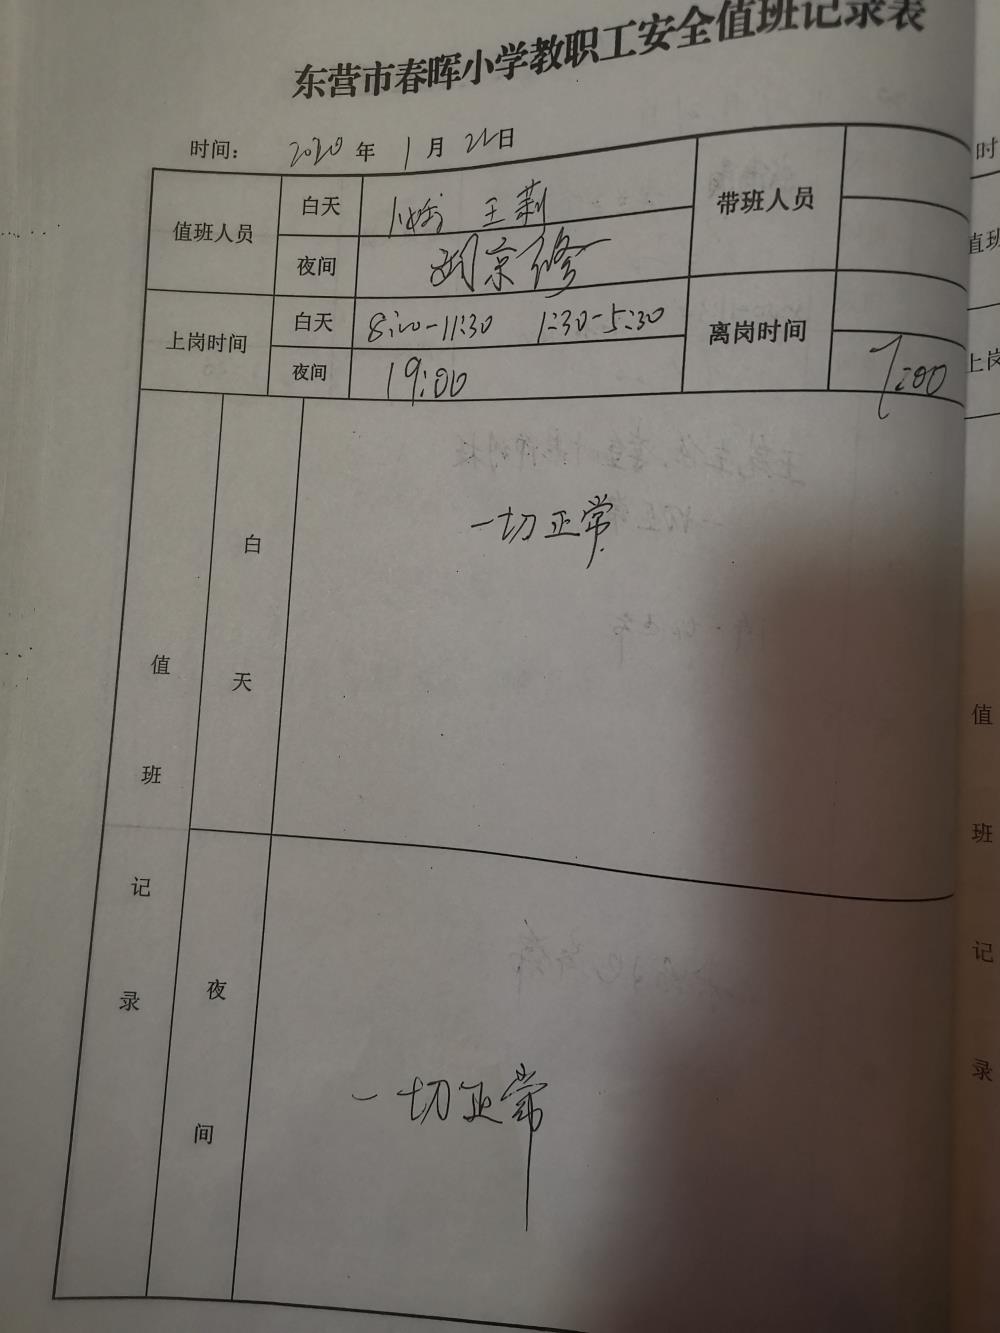 东营市春晖小学教职工安全值班记录表
时间: 2020 年 1 月 22 日
值班人员 白天 王莉 带班人员
夜间 胡京修
上岗时间 白天 8:00-11:30 1:30-5:30 离岗时间
夜间 19:00 7:00
值班记录 白天 一切正常
夜间 一切正常
时
值班
上岗
值
班
记
录